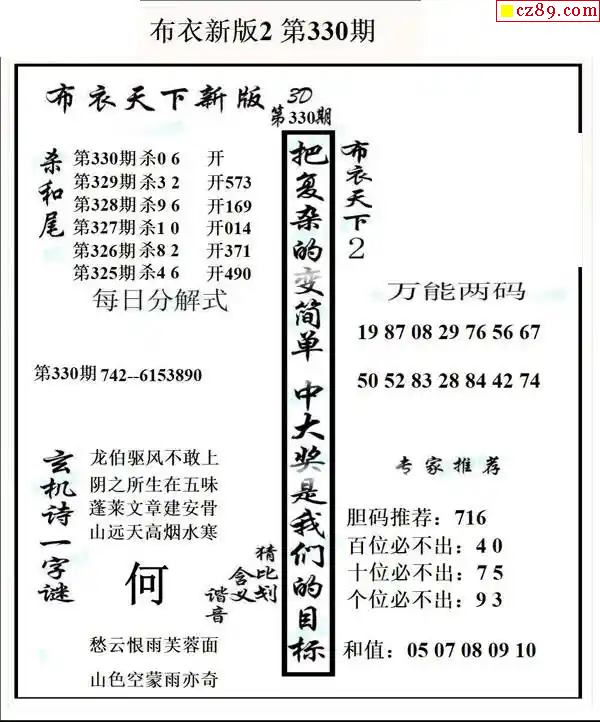 cz89.com
布衣新版2 第330期
布衣天下新版
3D
第330期
杀和尾
第330期杀0 6 开
第329期杀3 2 开573
第328期杀9 6 开169
第327期杀1 0 开014
第326期杀8 2 开371
第325期杀4 6 开490
每日分解式
第330期742--6153890
把复杂的变简单 中大奖是我们的目标
布衣天下2
万能两码
19 87 08 29 76 56 67
50 52 83 28 84 42 74
玄机诗一字谜
龙伯驱风不敢上
阴之所生在五味
蓬莱文章建安骨
山远天高烟水寒
何
猜比划
含义
谐音
愁云恨雨芙蓉面
山色空蒙雨亦奇
专家推荐
胆码推荐：716
百位必不出：4 0
十位必不出：7 5
个位必不出：9 3
和值：05 07 08 09 10